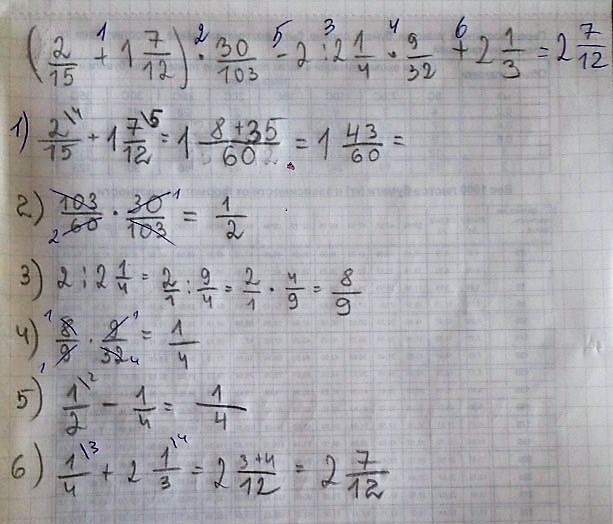 (2/15 + 1 7/12) · 30/103 - 2 : 2 1/4 · 9/32 + 2 1/3 = 2 7/12
1) 2\4/15 + 1 7\5/12 = 1 8+35/60 = 1 43/60 =
2) 103/60 · 30/103 = 1/2
3) 2 : 2 1/4 = 2/1 : 9/4 = 2/1 · 4/9 = 8/9
4) 8/9 · 9/32 = 1/4
5) 1\2/2 - 1/4 = 1/4
6) 1\3/4 + 2 1\4/3 = 2 3+4/12 = 2 7/12